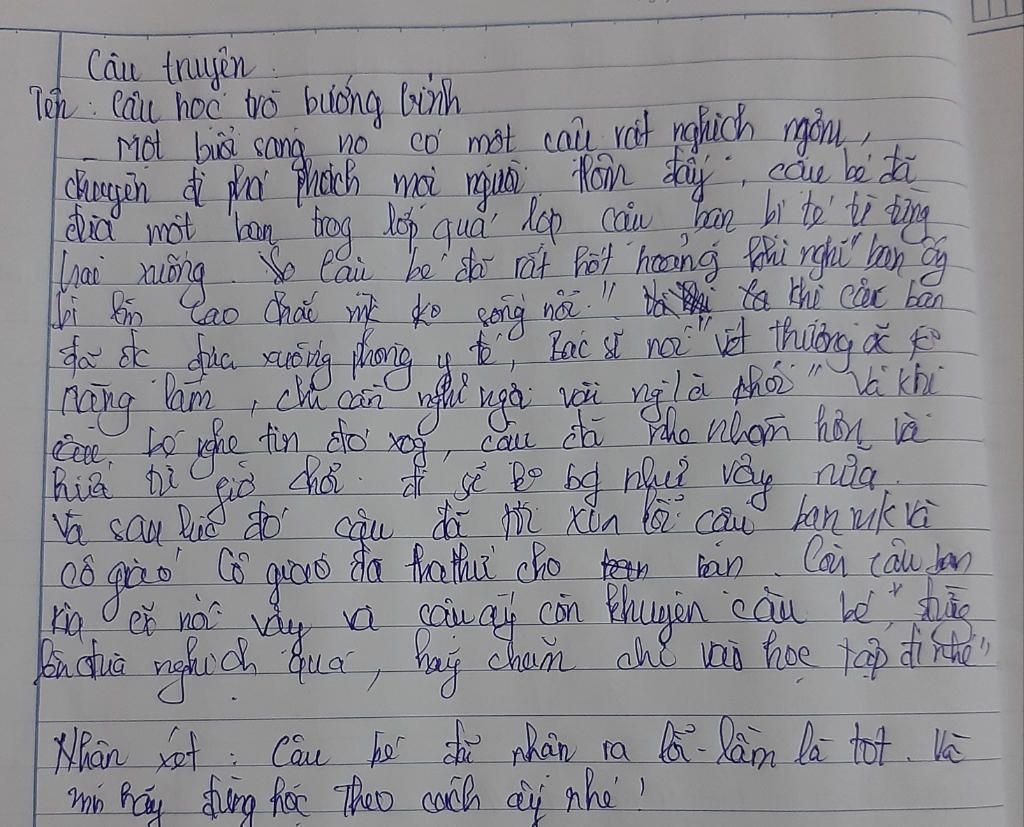 Câu truyện.
Tên: Cậu học trò bướng bỉnh
- Một buổi sáng nọ có một cậu rất nghịch ngợm,
chuyên đi phá phách mọi người. Hôm đấy, cậu bé đã
đùa một bạn trog lớp quá lớp cậu bạn bị té từ tầng
hai xuống. cậu bé đã rất hốt hoảng khi nghĩ "bạn ấy
bị cao chắc mk ko sống nổi." khi cậu bạn
đã đk đưa xuống phòng y tế, Bác sĩ nói "vết thương ko
nặng lắm, chỉ cần nghỉ ngơi vài ng là khỏi" Và khi
bé nghe tin đó xog, cậu đã nhẹ nhõm hơn và
hứa từ giờ chơi. đi sẽ ko bg như vậy nữa.
Và sau lúc đó cậu đã tới xin lỗi cậu bạn mk và
cô giáo Cô giáo đã tha thứ cho bạn. Còn cậu bạn
kia cũ nói vậy và cậu ấy còn khuyên cậu bé "đừng
nên đùa nghịch quá, hãy chăm chỉ vào học tập đi nhé"
Nhận xét: Cậu bé đã nhận ra lỗi lầm là tốt. Và
mn hãy đừng học theo cách ấy nhé!